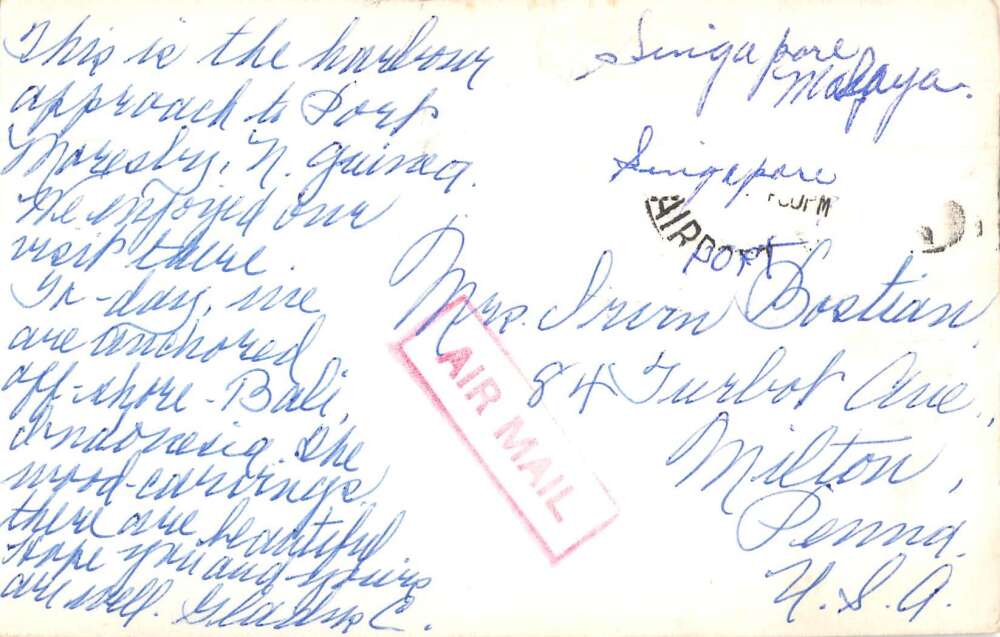 This is the harbour
approach to Port
Moresby, N. Guinea.
We enjoyed our
visit there.
To-day, we
are anchored
off-shore - Bali,
Indonesia. The
wood-carvings
there are beautiful
Hope you and yours
are well. Gladys C.
Singapore
Malaya.
Singapore
PM
AIRPORT
Mrs. Irvin Bostian,
84 Turbot Ave.,
Milton,
Penna.
U.S.A.
AIR MAIL